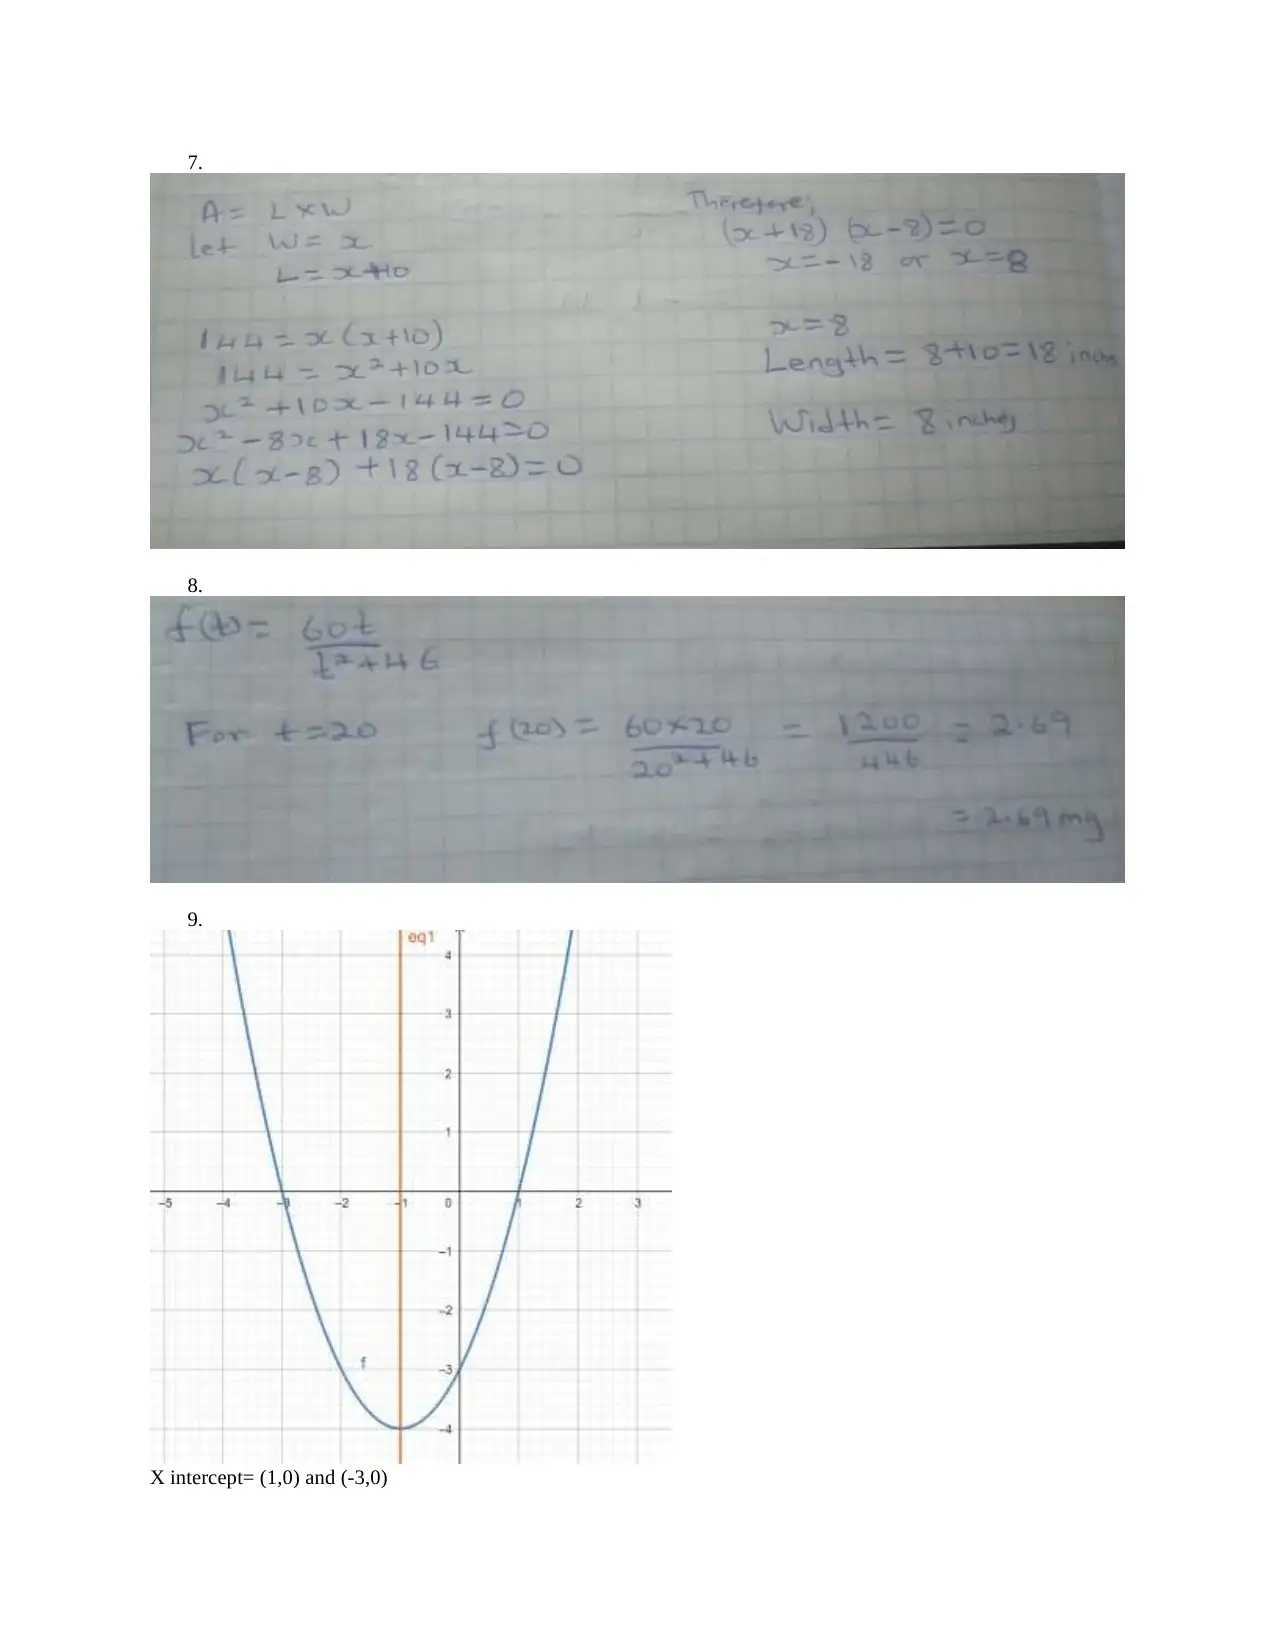 7.
A = L × W
Let W = x
L = x+10
144 = x (x+10)
144 = x² +10x
x² +10x – 144 = 0
x² – 8x + 18x – 144 = 0
x ( x – 8 ) + 18 (x – 8) = 0
Therefore;
(x + 18) (x – 8) = 0
x = – 18 or x = 8
x = 8
Length = 8+10 = 18 inches
Width = 8 inches
8.
f(t) = 60t / t² + 46
For t = 20 f(20) = 60×20 / 20² + 46 = 1200 / 446 = 2.69
= 2.69 mg
9.
eq1
4
3
2
1
–5 –4 –3 –2 –1 0 1 2 3
–1
–2
f
–3
–4
X intercept= (1,0) and (-3,0)